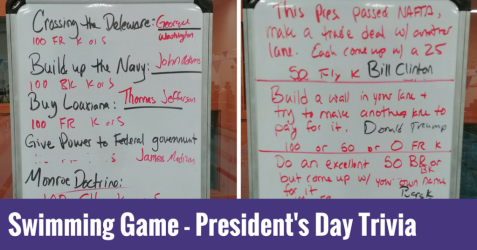 Crossing the Deleware: George
Washington
100 FR K or S
Build up the Navy: John Adams
100 BK K or S
Buy Louxiana: Thomas Jefferson
100 FR K or S
Give Power to Federal government
James Madison
Monroe Doctrine:
This Pres passed NAFTA,
make a trade deal w/ another
lane. Each come up w/ a 25
50 Fly K Bill Clinton
Build a wall in your lane &
try to make another lane to
pay for it. Donald Trump
100 or 50 or 0 FR K
Do an excellent 50 BR or
BK
but come up w/ your own name
for it
Swimming Game - President's Day Trivia